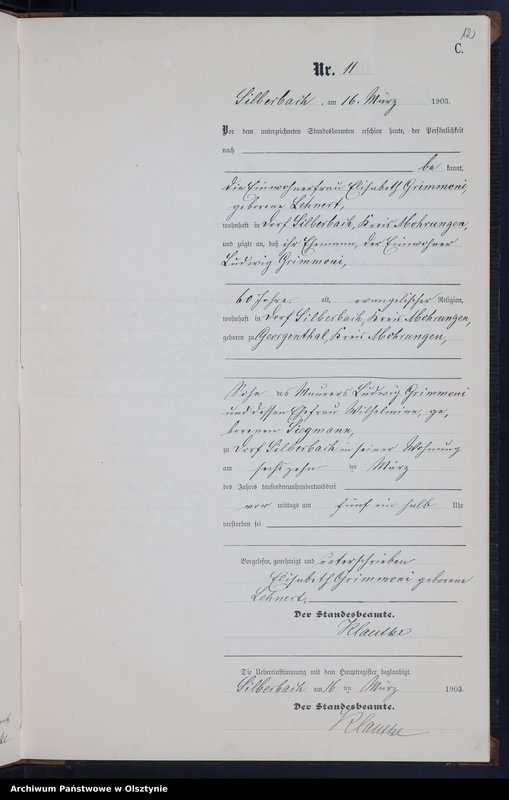 12
C.
Nr. 11
Silberbach, am 16. März 1903.
Vor dem unterzeichneten Standesbeamten erschien heute, der Persönlichkeit
nach
be kannt,
die Einwohnerfrau Elisabeth Grimmoni,
geborene Lehnert,
wohnhaft in Dorf Silberbach, Kreis Mohrungen,
und zeigte an, daß ihr Ehemann, der Einwohner
Ludwig Grimmoni,
60 Jahre alt, evangelischer Religion,
wohnhaft in Dorf Silberbach, Kreis Mohrungen,
geboren zu Georgenthal, Kreis Mohrungen,
Sohn des Maurers Ludwig Grimmoni
und dessen Ehefrau Wilhelmine, ge-
borenen Siegmann,
zu Dorf Silberbach in seiner Wohnung
am sechszehn ten März
des Jahres tausendneunhundertunddrei
vor mittags um fünf ein halb Uhr
verstorben sei
Vorgelesen, genehmigt und unterschrieben
Elisabeth Grimmoni geborene
Lehnert.
Der Standesbeamte.
Klautke
Die Uebereinstimmung mit dem Hauptregister beglaubigt.
Silberbach am 16 ten März 1903.
Der Standesbeamte.
Klautke
Archiwum Państwowe w Olsztynie